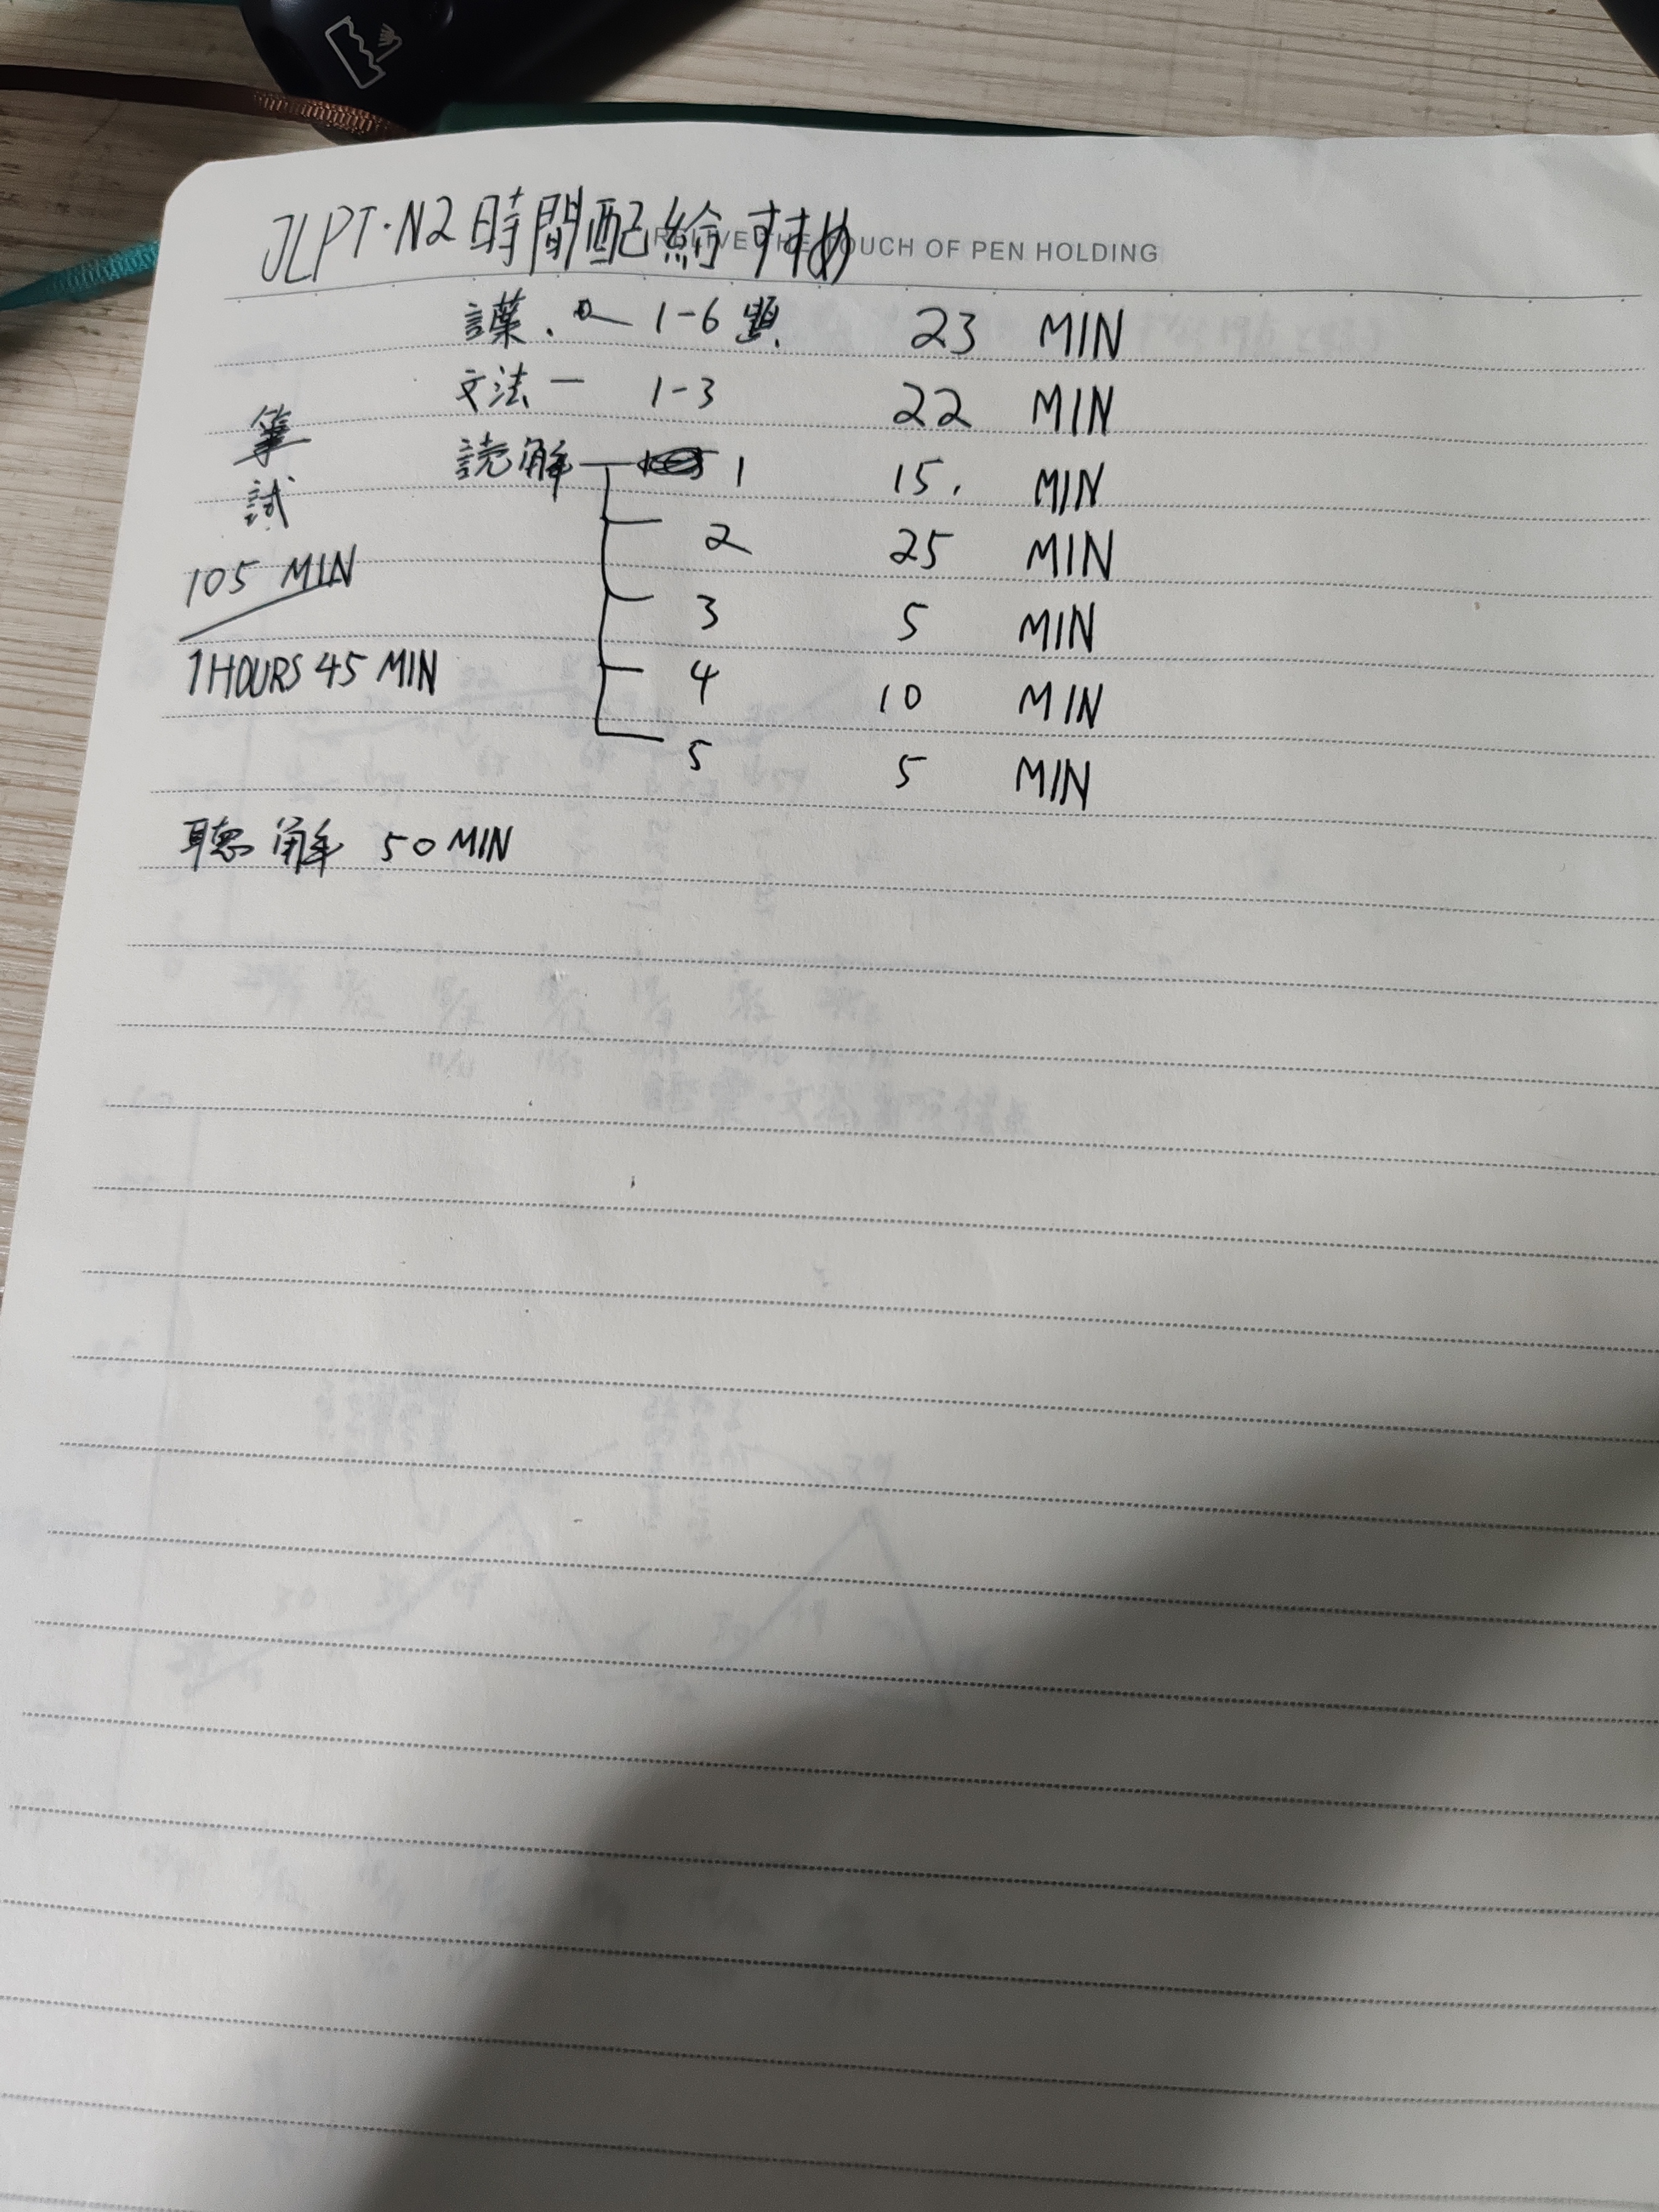 JLPT·N2 時間配給すすめ
RELIVE THE TOUCH OF PEN HOLDING
1-6 題. 23 MIN
文法 — 1-3 22 MIN
筆試
読解 1 15. MIN
2 25 MIN
105 MIN
3 5 MIN
1 HOURS 45 MIN
4 10 MIN
5 5 MIN
聴解 50 MIN